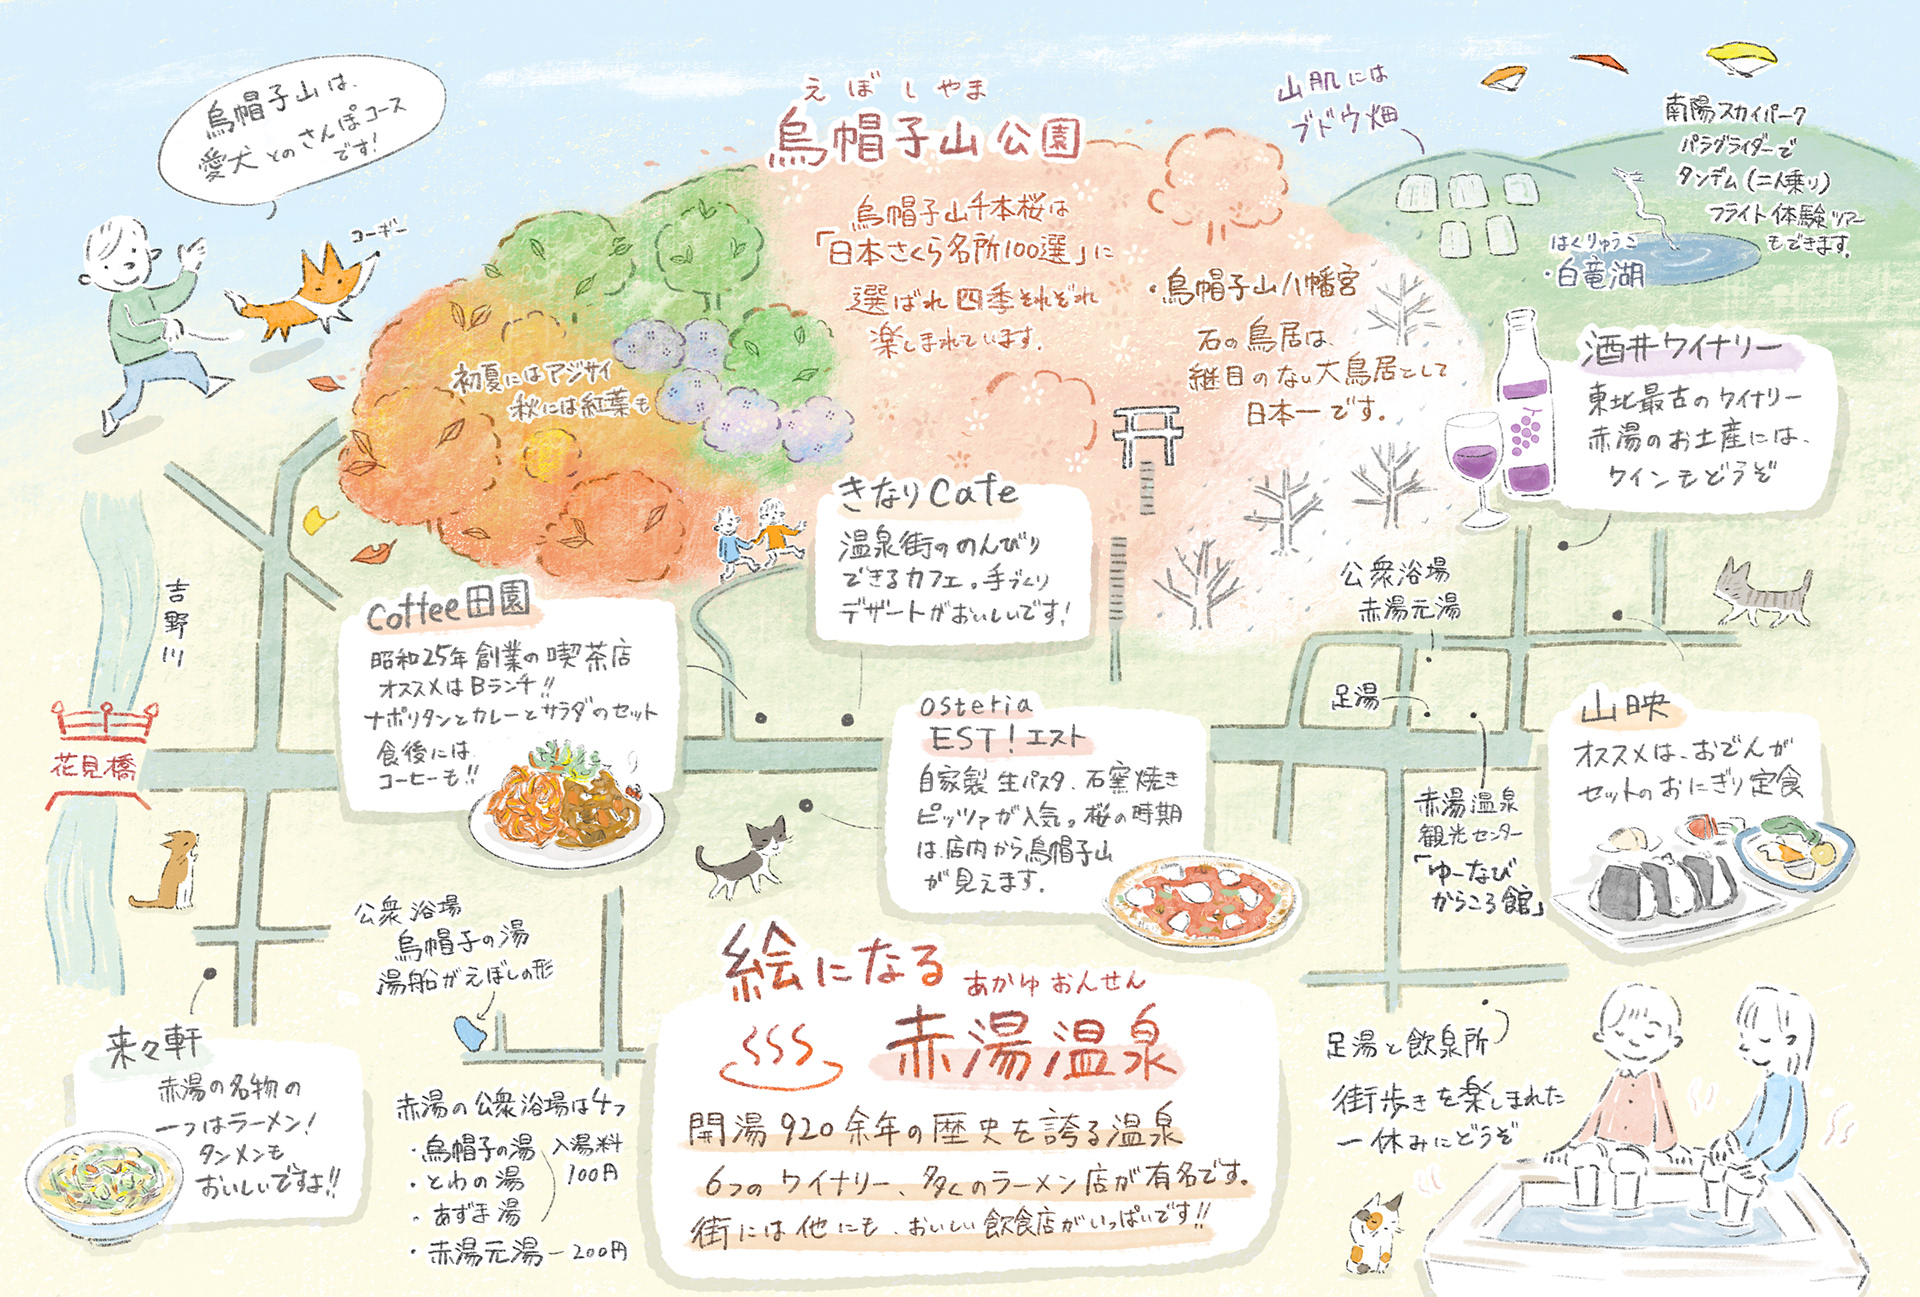 烏帽子山は、
愛犬とのさんぽコース
です!
コーギー
えぼしやま
烏帽子山公園
烏帽子山千本桜は
「日本さくら名所100選」に
選ばれ四季それぞれ
楽しまれています。
初夏にはアジサイ
秋には紅葉も
・烏帽子山八幡宮
石の鳥居は、
継目のない大鳥居として
日本一です。
山肌には
ブドウ畑
南陽スカイパーク
パラグライダーで
タンデム(二人乗り)
フライト体験ツアー
もできます。
はくりゅうこ
・白竜湖
酒井ワイナリー
東北最古のワイナリー
赤湯のお土産には、
ワインもどうぞ
きなりCafe
温泉街ののんびり
できるカフェ。手づくり
デザートがおいしいです!
Coffee田園
昭和25年創業の喫茶店
オススメはBランチ!!
ナポリタンとカレーとサラダのセット
食後には
コーヒーも!!
吉野川
花見橋
osteria
EST!エスト
自家製生パスタ、石窯焼き
ピッツァが人気。桜の時期
は、店内から烏帽子山
が見えます。
公衆浴場
赤湯元湯
足湯
赤湯温泉
観光センター
「ゆーなび
からころ館」
山映
オススメは、おでんが
セットのおにぎり定食
公衆浴場
烏帽子の湯
湯船がえぼしの形
来々軒
赤湯の名物の
一つはラーメン!
タンメンも
おいしいですよ!!
赤湯の公衆浴場は4つ
・烏帽子の湯
・とわの湯
・あずま湯
入湯料
100円
・赤湯元湯ー200円
絵になる
あかゆおんせん
赤湯温泉
開湯920余年の歴史を誇る温泉
6つのワイナリー、多くのラーメン店が有名です。
街には他にも、おいしい飲食店がいっぱいです!!
足湯と飲泉所
街歩きを楽しまれた
一休みにどうぞ